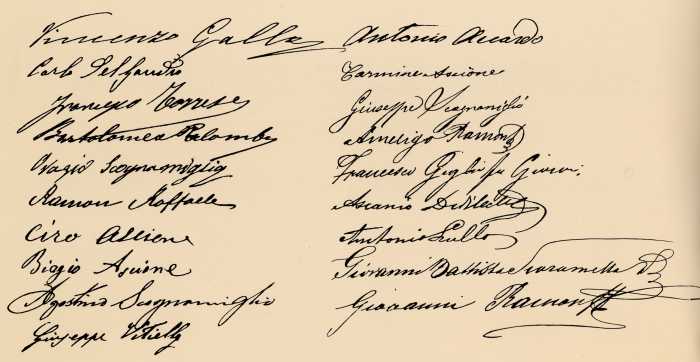 Vincenzo Gallo
Carlo Del Gaudio
Francesco Torrese
Bartolomeo Palomba
Orazio Scognamiglio
Ramon Raffaele
Ciro Allione
Biagio Ascione
Agostino Scognamiglio
Giuseppe Vitiello
Antonio Accardo
Carmine Ascione
Giuseppe Scognamiglio
Amerigo Ramond
Francesco Giglio fu Giovni.
Ascanio
Antonio Lullo
Giovanni Battista Scaramella
Giovanni Ramon